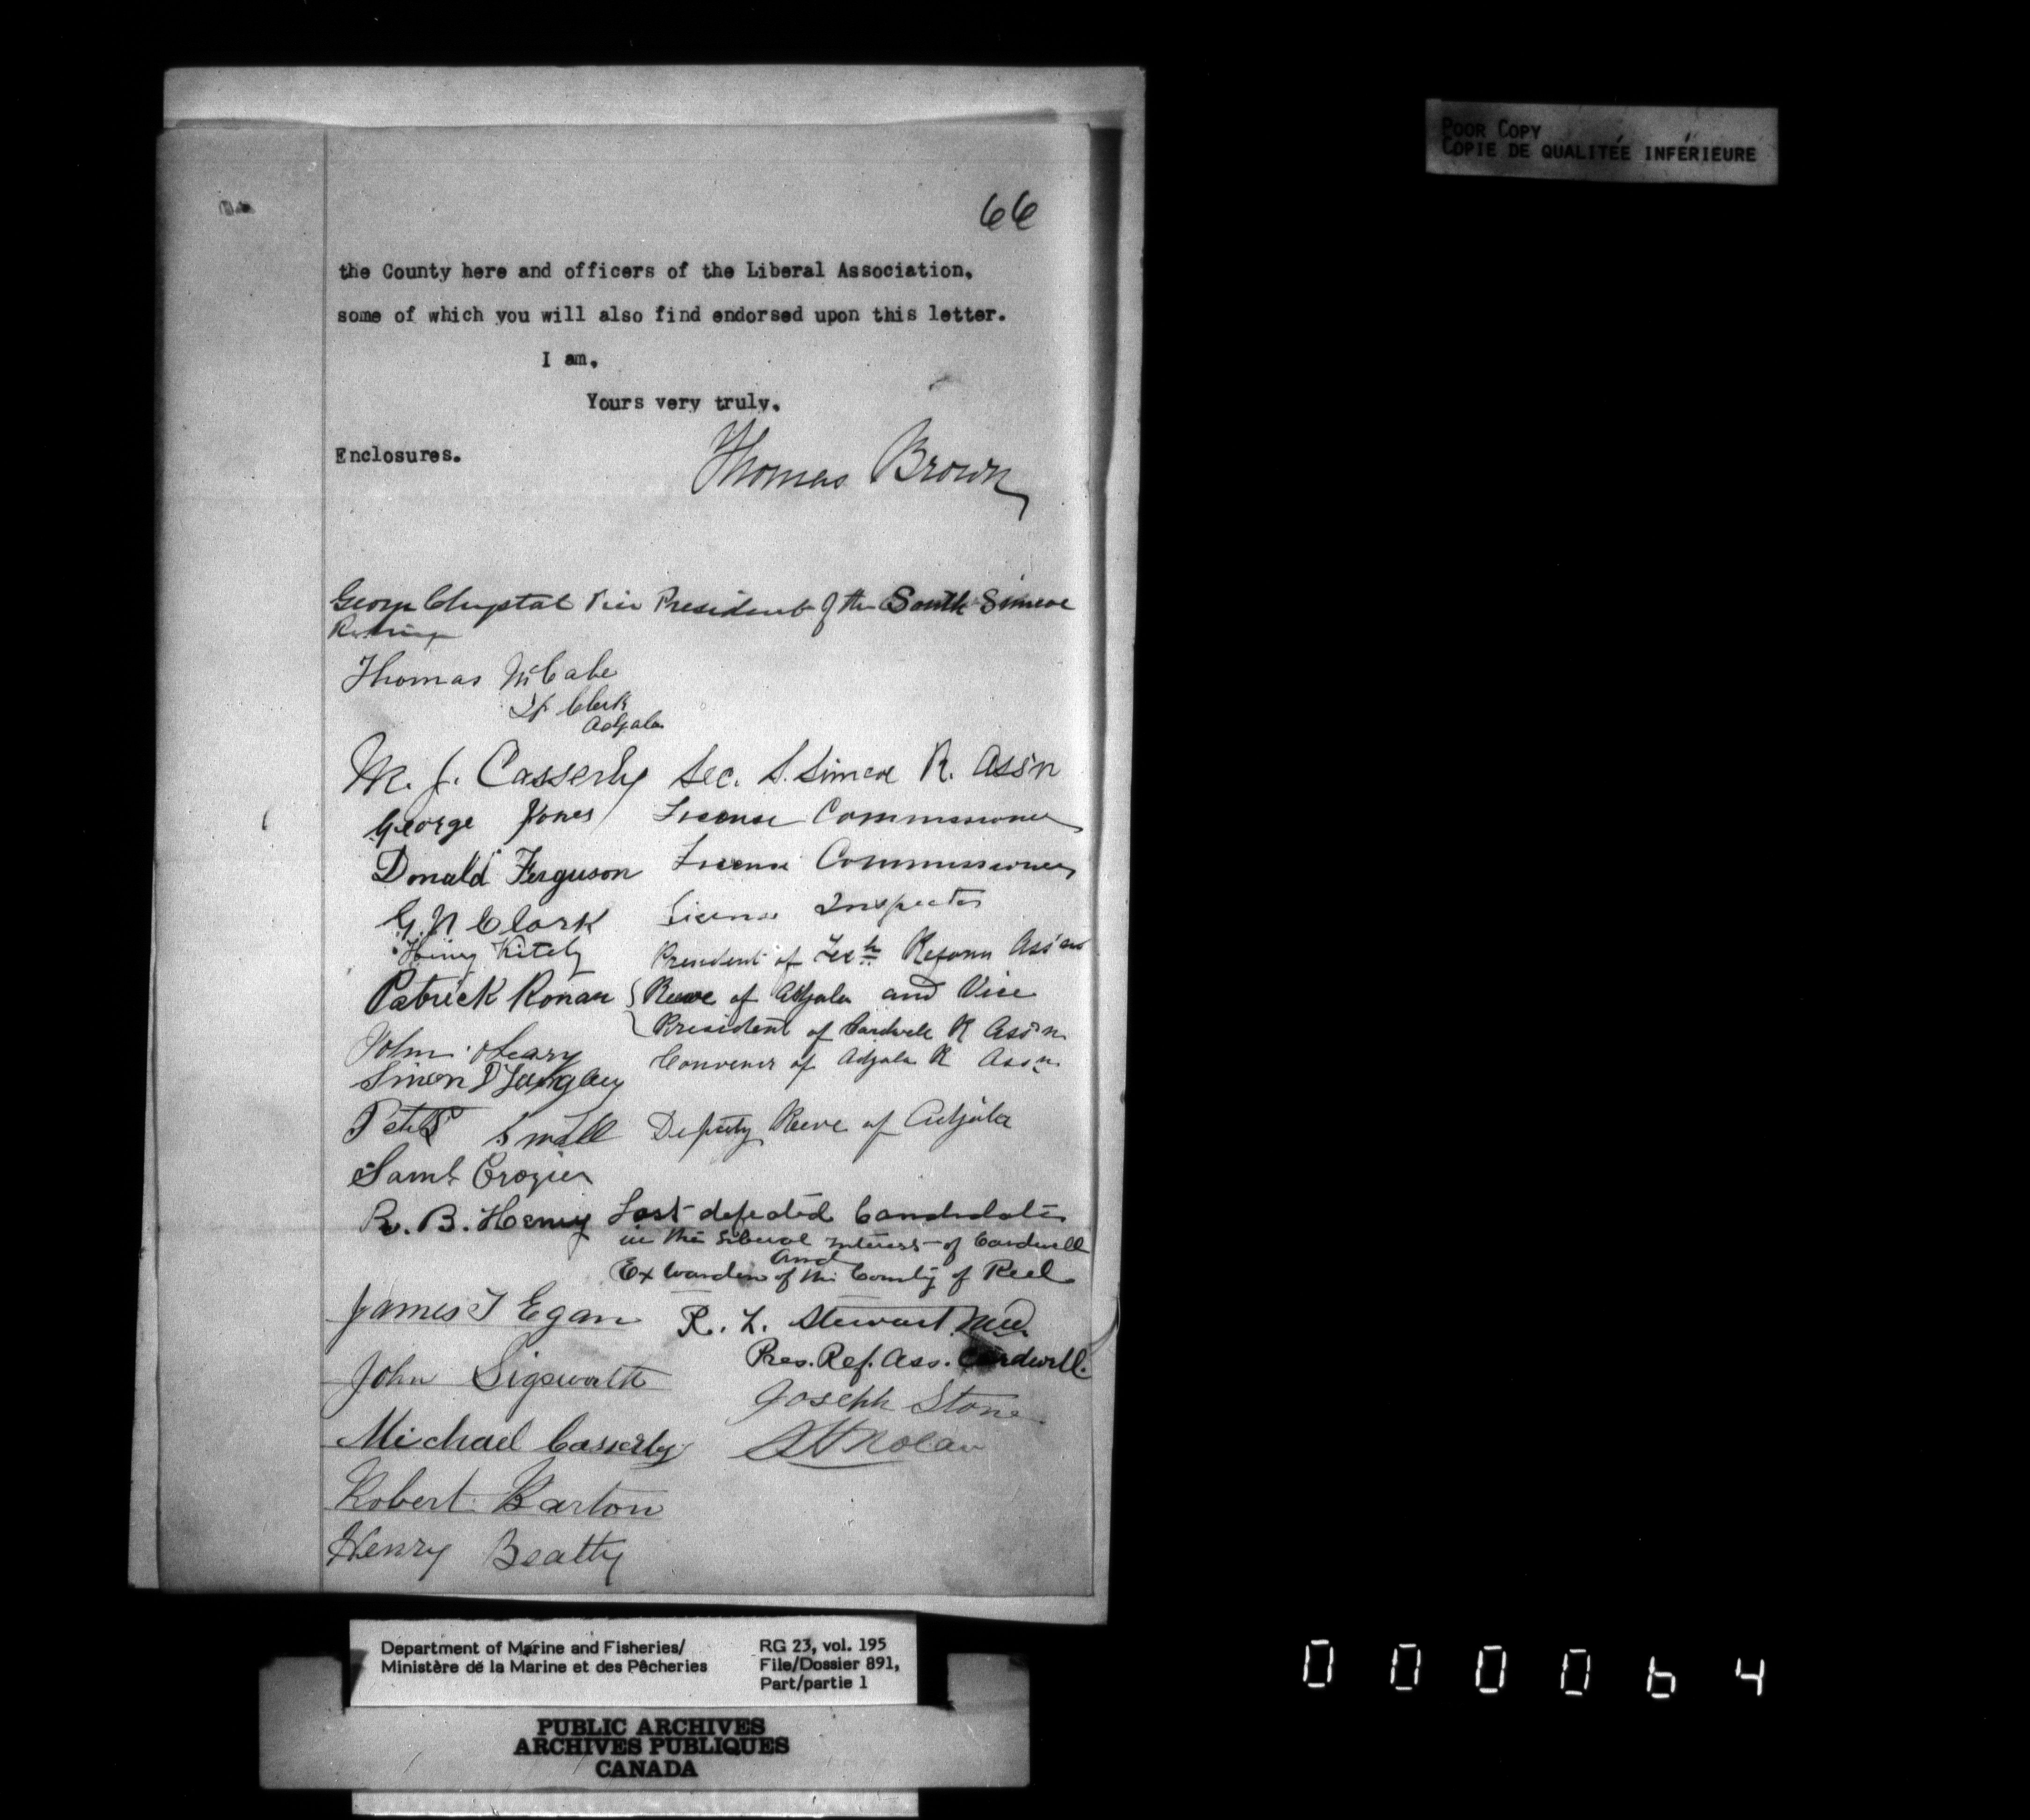 POOR COPY
COPIE DE QUALITÉE INFÉRIEURE
66
the County here and officers of the Liberal Association,
some of which you will also find endorsed upon this letter.
I am,
Yours very truly,
Enclosures.
Thomas Brown
George Chrystal Vice President of the South Simcoe
Thomas McCabe
Tp Clerk
Adjala
M. J. Casserly Sec. S. Simcoe R. Ass'n
George Jones License Commissioner
Donald Ferguson License Commissioner
G. N Clark License Inspector
Henry Kitely President of Tecth Reform Ass'an
Patrick Ronan { Reeve of Adjala and Vice
President of Cardwell R Ass'n
John O'Leary Convener of Adjala R Assn.
Simon D Langley
Small Deputy Reeve of Adjala
Saml Crozier
R. B. Henry Last defeated Candidate
in the Liberal interest of Cardwell
and
Ex Warden of the County of Peel
James T Egan R. L. Stewart M.D.
Pres. Ref. Ass. Cardwell.
John Sigsworth
Joseph Stone
Michael Casserly
Nolan
Robert Barton
Henry Beatty
Department of Marine and Fisheries/
Ministère de la Marine et des Pêcheries
RG 23, vol. 195
File/Dossier 891,
Part/partie 1
PUBLIC ARCHIVES
ARCHIVES PUBLIQUES
CANADA
000064